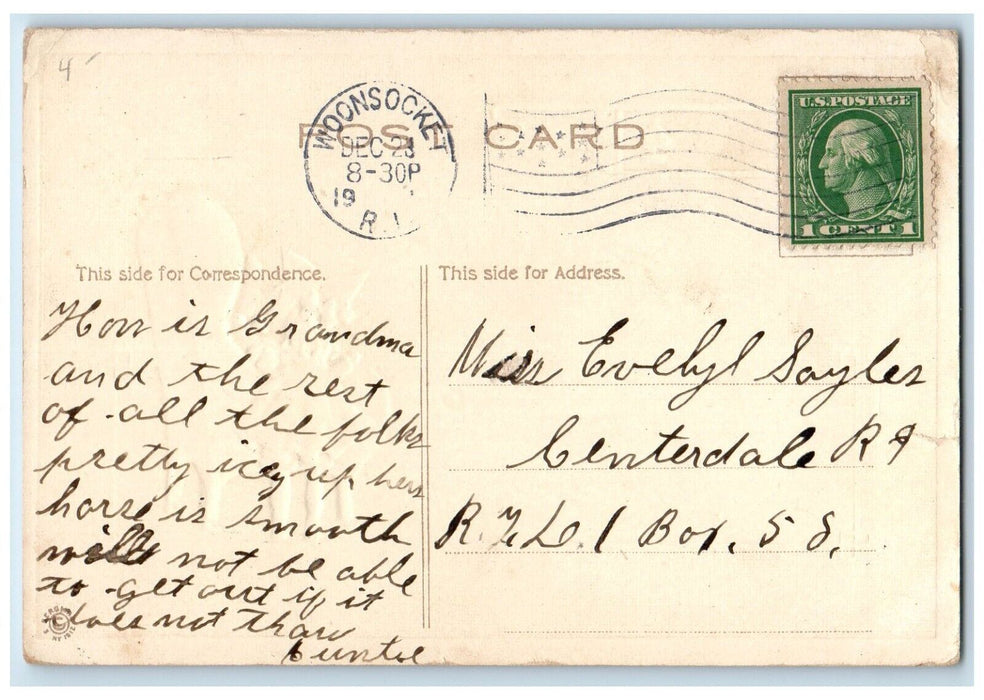 4
WOONSOCKET
DEC 23
8-30P
19
R.I.
POST CARD
U.S. POSTAGE
1 CENT 1
This side for Correspondence.
How is Grandma
and the rest
of all the folks
pretty icey up here
horse is smooth
will not be able
to get out if it
does not thaw
Auntie
This side for Address.
Miss Evelyl Sayles
Centerdale R I
R.F.D. 1 Box. 5 S.